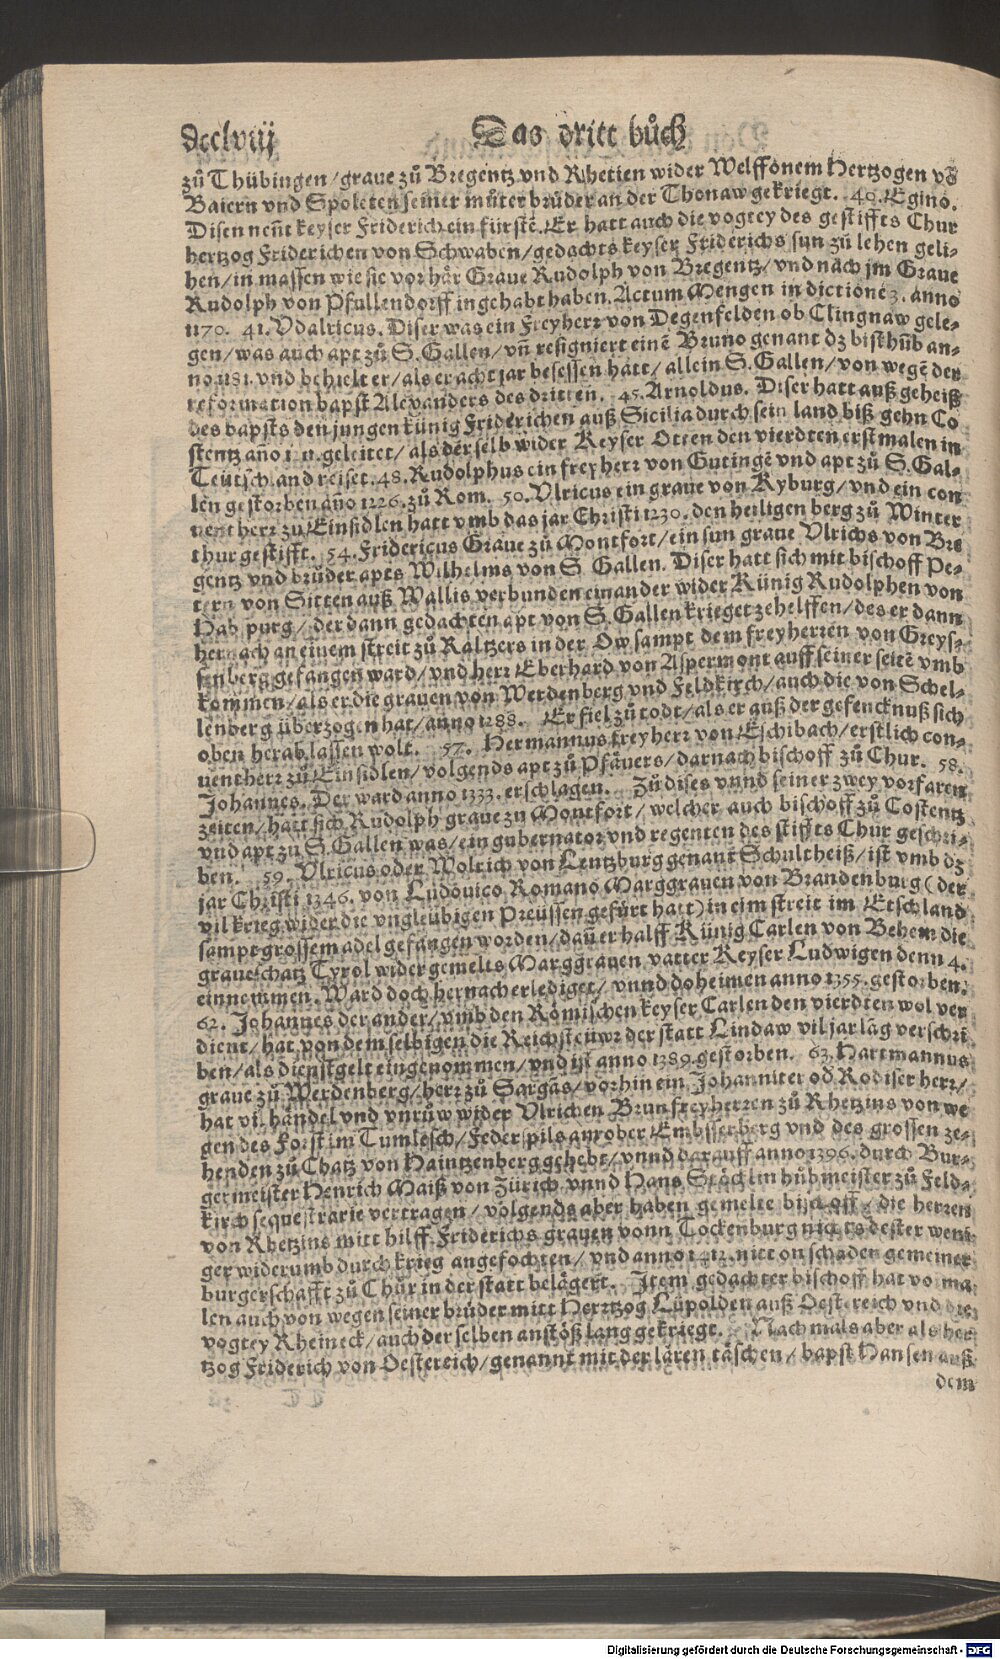 dcclviij Das dritt bůch
zů Thübingen/graue zů Bregentz vnd Rhetien wider Welffonem Hertzogen võ
Baiern vnd Spoleten seiner můter brůder an der Thonaw gekriegt. 40. Egino.
Disen neñt keyser Friderich ein fürstē. Er hatt auch die vogtey des gestiffts Chur
hertzog Friderichen von Schwaben/gedachts keyser Friderichs sun zů lehen geli-
hen/in massen wie sie vorhår Graue Rudolph von Bregentz/vnd nach jm Graue
Rudolph von Pfullendorff ingehabt haben. Actum Mengen in dictione 3. anno
1170. 41. Vdalricus. Diser was ein Freyherr von Degenfelden ob Clingnaw gele-
gen/was auch apt zů S. Gallen/vñ resigniert einē Bruno genant dz bisthůb an-
no 1181. vnd behielt er/als er acht jar besessen hatt/allein S. Gallen/von wegē der
reformation bapst Alexanders des dritten. 45. Arnoldus. Diser hatt auß geheiß
des bapsts den jungen künig Friderichen auß Sicilia durch sein land biß gehn Co
stentz año 1211. geleitet/als derselb wider Keyser Otten den vierdten erstmalen in
Teütschland reiset. 48. Rudolphus ein freyherr von Gutingē vnd apt zů S. Gal-
len gestorben año 1226. zů Rom. 50. Vlricus ein graue von Kyburg/vnd ein con
uentherr zu Einsidlen hatt vmb das jar Christi 1230. den heiligen berg zů Winter
thur gestifft. 54. Fridericus Graue zů Montfort/ein sun graue Vlrichs von Bre
gentz vnd brůder apts Wilhelms von S. Gallen. Diser hatt sich mit bischoff Pe-
tern von Sitten auß Wallis verbunden einander wider Künig Rudolphen von
Habspurg/der dann gedachten apt von S. Gallen krieget zehelffen/des er dann
hernach an einem streit zů Baltzers in der Ow sampt dem freyherren von Greys-
senberg gefangen ward/vnd herr Eberhard von Aspermont auff seiner seitē vmb
kommen/als er die grauen von Werdenberg vnd Feldkirch/auch die von Schel-
lenberg überzogen hat/anno 1288. Er fiel zů todt/als er auß der gefencknuß sich
oben herab lassen wolt. 57. Hermannus freyherr von Eschibach/erstlich con-
uentherr zů Einsidlen/volgends apt zů Pfåuers/darnach bischoff zů Chur. 58.
Johannes. Der ward anno 1333. erschlagen. Zů dises vnnd seiner zwey vorfaren
zeiten/hatt sich Rudolph graue zu Montfort/welcher auch bischoff zů Costentz
vnd apt zu S. Gallen was/ein gubernator vnd regenten des stiffts Chur geschri-
ben. 59. Vlricus oder Wolrich von Lentzburg genant Schultheiß/ist vmb dz
jar Christi 1346. von Ludouico Romano Marggrauen von Brandenburg (der
vil krieg wider die vngleubigen Preüssen gefürt hatt) in eim streit im Etschland
sampt grossem adel gefangen worden/dañ er halff Künig Carlen von Behem die
graueschatz Tyrol wider gemelts Marggrauen vatter Keyser Ludwigen denn 4.
einnemmen. Ward doch hernach erlediget/vnnd doheimen anno 1355. gestorben.
62. Johannes der ander/vmb den Römischen keyser Carlen den vierdten wol ver
dient/hat von demselbigen die Reichsteüwr der statt Lindaw vil jar lāg verschri
ben/als dienstgelt eingenommen/vnd ist anno 1389. gestorben. 63. Hartmannus
graue zů Werdenberg/herr zů Sargās/vorhin ein Johanniter od Rodiser herr/
hat vil håndel vnd vnrůw wider Vlrichen Brun freyherren zů Rhetzins von we
gen des Forst im Tumlesch/Federspils an ober Embsserberg vnd des grossen ze-
henden zů Chatz von Haintzenberg gehebt/vnnd darauff anno 1396. durch Bur-
germeister Henrich Maiß von Zürich vnnd Hans Stöcklin hůbmeister zů Feld-
kirch sequestrarie vertragen/volgends aber haben gemelte bischoff/die herren
von Rhetzins mitt hilff Friderichs grauen vonn Tockenburg nichts dester weni
ger widerumb durch krieg angefochten/vnd anno 1412. nitt on schaden gemeiner
burgerschafft zů Chur in der statt belågert. Item gedachter bischoff hat vo ma
len auch von wegen seiner brůder mitt Hertzog Lüpolden auß Oestereich vnd die
vogtey Rheineck/auch derselben anstöß lang gekriegt. Nachmals aber als her
tzog Friderich von Oestereich/genannt mit der låren tåschen/bapst Hansen auß
dem
Digitalisierung gefördert durch die Deutsche Forschungsgemeinschaft - DFG